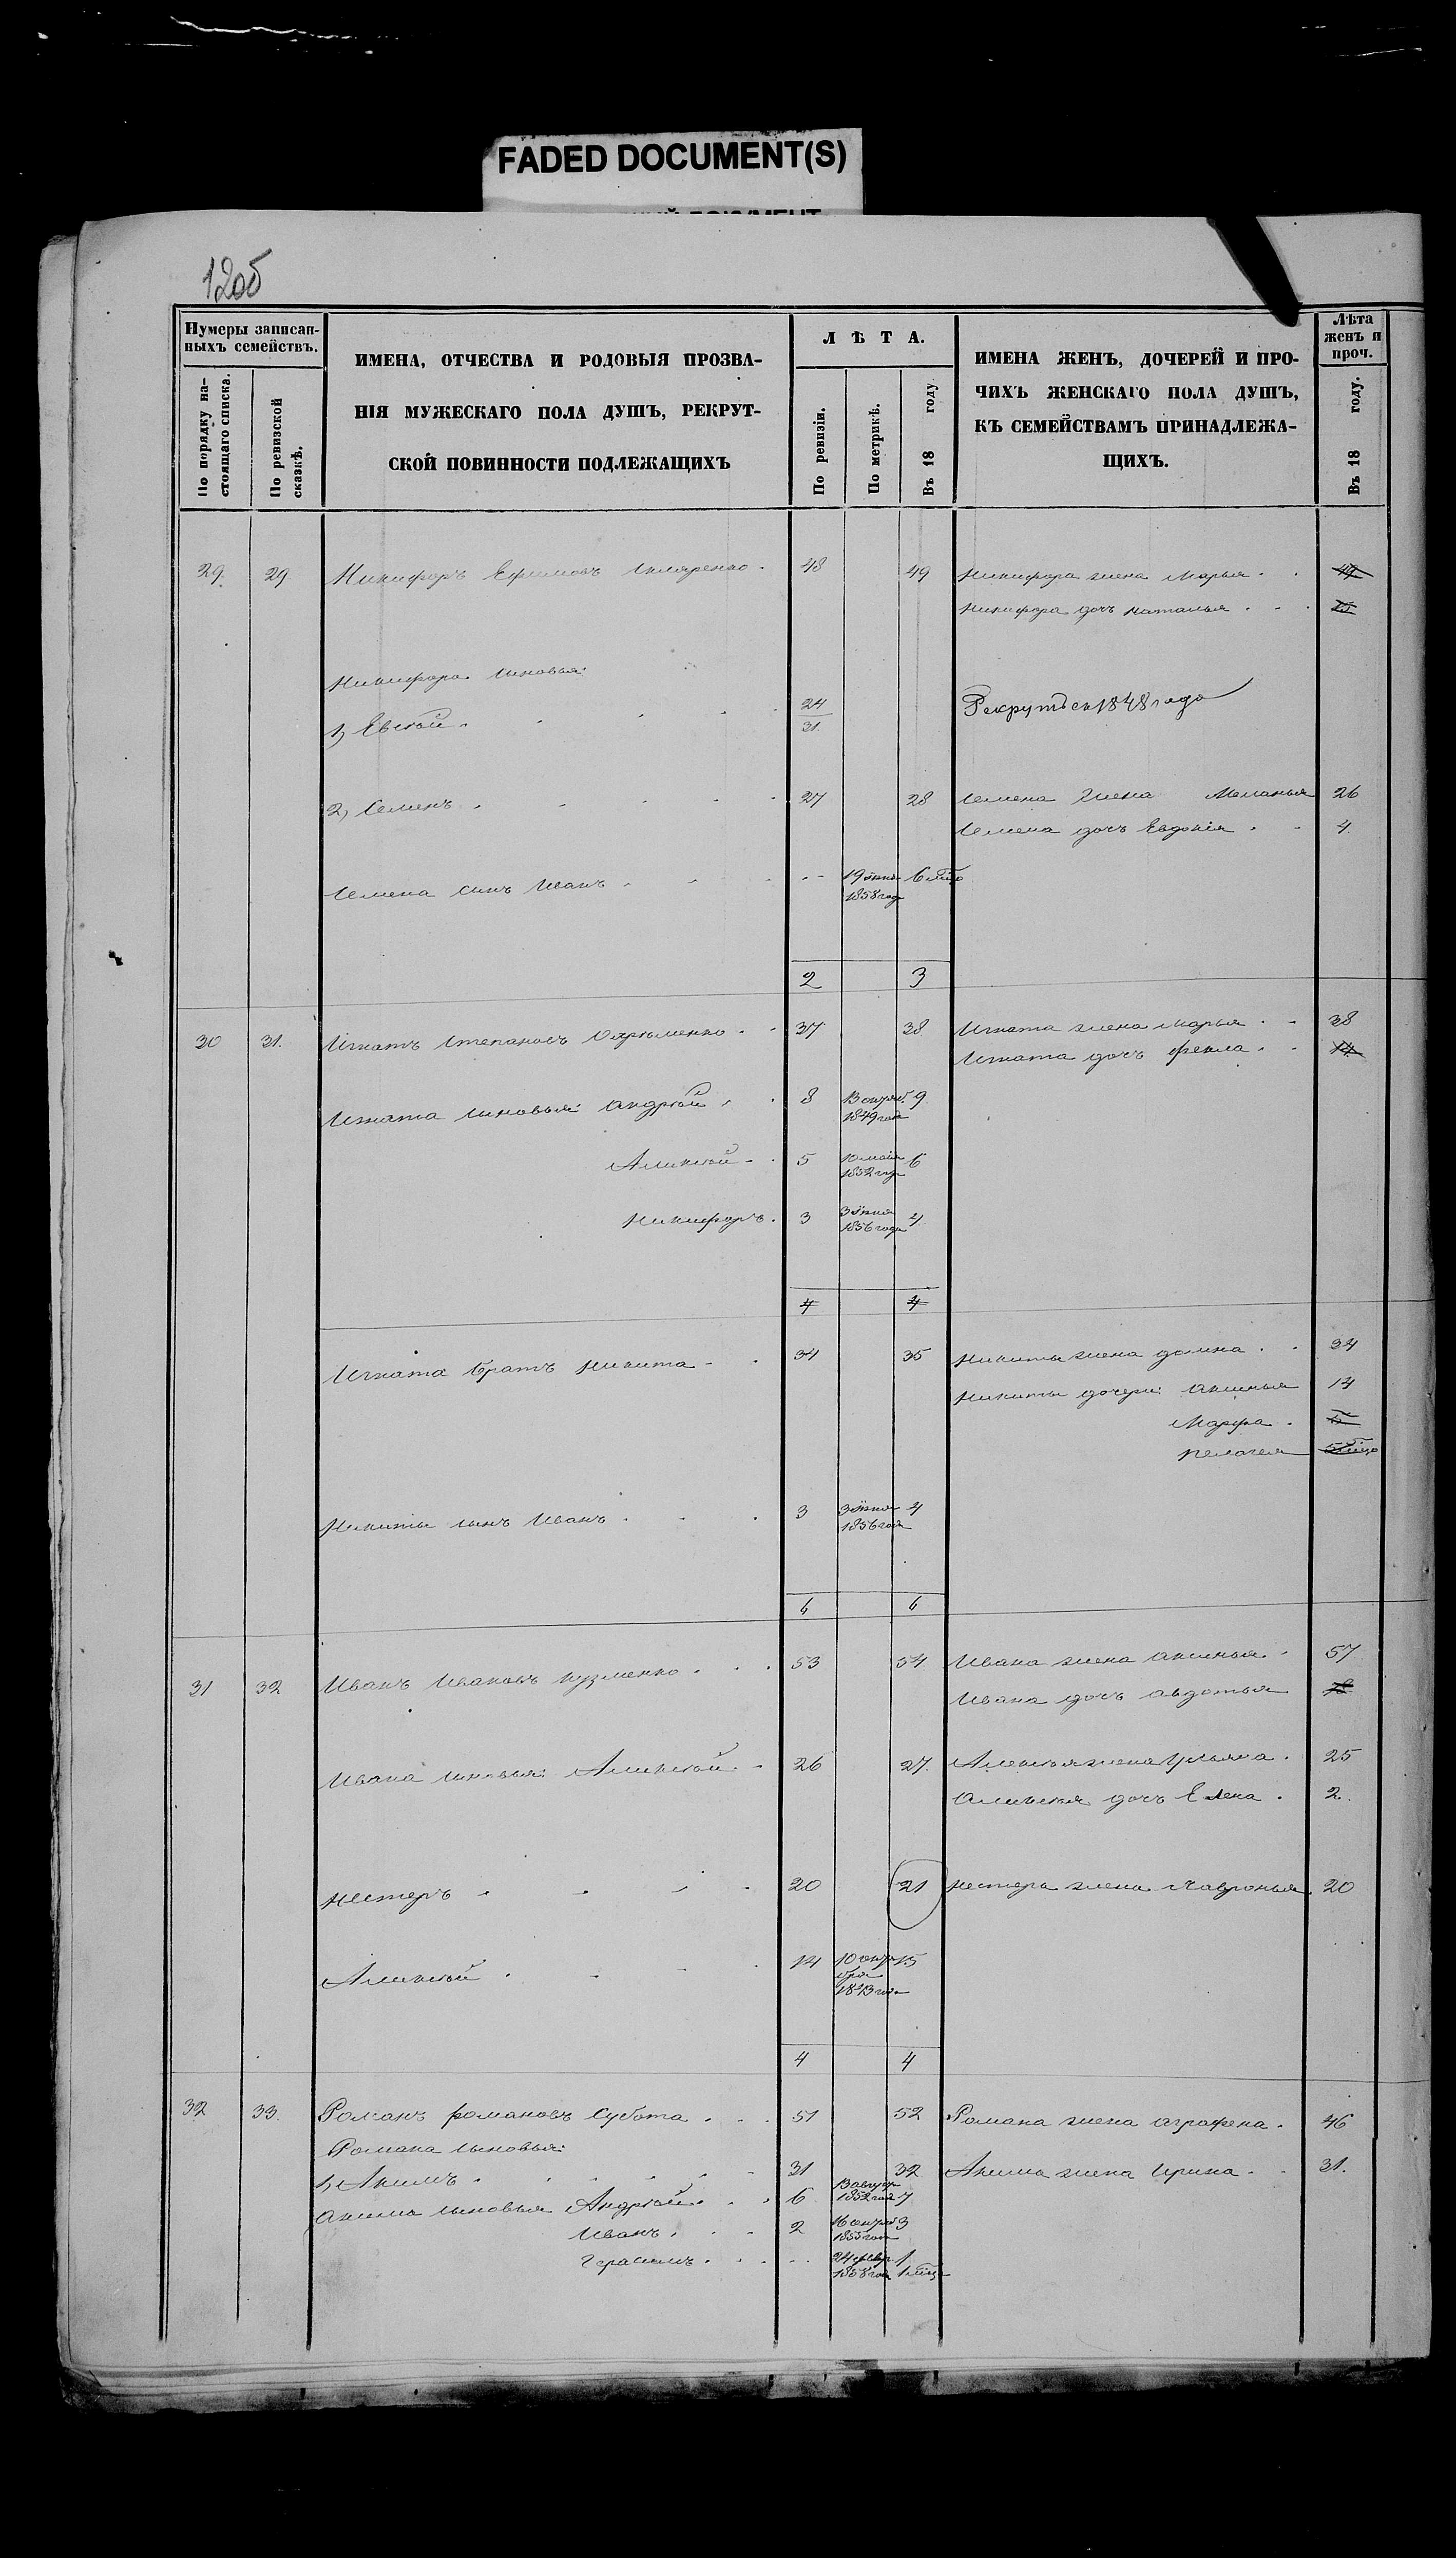 FADED DOCUMENT(S)
120б
Нумеры записан-
ныхъ семействъ.
По порядку на-
стоящаго списка.
По ревизской
сказкѣ.
ИМЕНА, ОТЧЕСТВА И РОДОВЫЯ ПРОЗВА-
НІЯ МУЖЕСКАГО ПОЛА ДУШЪ, РЕКРУТ-
СКОЙ ПОВИННОСТИ ПОДЛЕЖАЩИХЪ
ЛѢТА.
По ревизіи.
По метрикѣ.
Въ 18 году
ИМЕНА ЖЕНЪ, ДОЧЕРЕЙ И ПРО-
ЧИХЪ ЖЕНСКАГО ПОЛА ДУШЪ,
КЪ СЕМЕЙСТВАМЪ ПРИНАДЛЕЖА-
ЩИХЪ.
Лѣта
женъ и
проч.
Въ 18 году.
29. 29. Никифоръ Ефимовъ Скляренко. 48 49 Никифора жена Марья. 49
Никифора дочь Наталья
Никифора сыновья:
1, Евсѣй. 24 Рекрутъ съ 1848 года
31.
2, Семенъ 27 28 Семена жена Меланья 26
Семена дочь Евдокія 4.
Семена сынъ Иванъ 19 Іюня 6 мѣс
1858 года
2 3
30 31. Игнатъ Степановъ 37 38 Игната жена Марья 38
Игната дочь Фекла 14
Игната сыновья: Андрѣй 8 9
1849 года
Алексѣй 5 10 мая 6
1852 года
Никифоръ. 3 3 Іюня 4
1856 года
4 4
Игната братъ Никита 34 35 Никиты жена Домна 34
Никиты дочери: Аксинья 14
Марфа
Пелагея
Никиты сынъ Иванъ 3 3 Іюня 4
1856 года
6 6
31 32 Иванъ Ивановъ Кузменко 53 54 Ивана жена Аксинья 57
Ивана дочь Авдотья
Ивана сыновья: Алексѣй 26 27. Алексѣя жена Ульяна 25
Алексѣя дочь Елена 2.
Нестеръ 20 21 Нестера жена Хавронья 20
Алексѣй 14 10 октя 15
бря
1843 года
4 4
32 33. Романъ Романовъ Субота 51 52 Романа жена Аграфена. 46
Романа сыновья:
1, Акимъ 31 32 Акима жена Ирина 31.
Акима сыновья Андрѣй 6 1852 года 7
Иванъ 2 3
1855 года
Герасимъ 24 февр. 1.
1858 года 1 мѣс